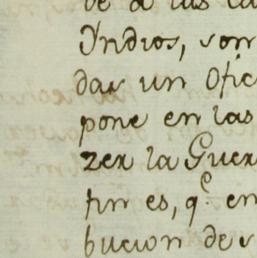 de à las la
Yndios, son
dar un Ofic
pone en las
zer la Guer
fin es, q.e en
bucion de s